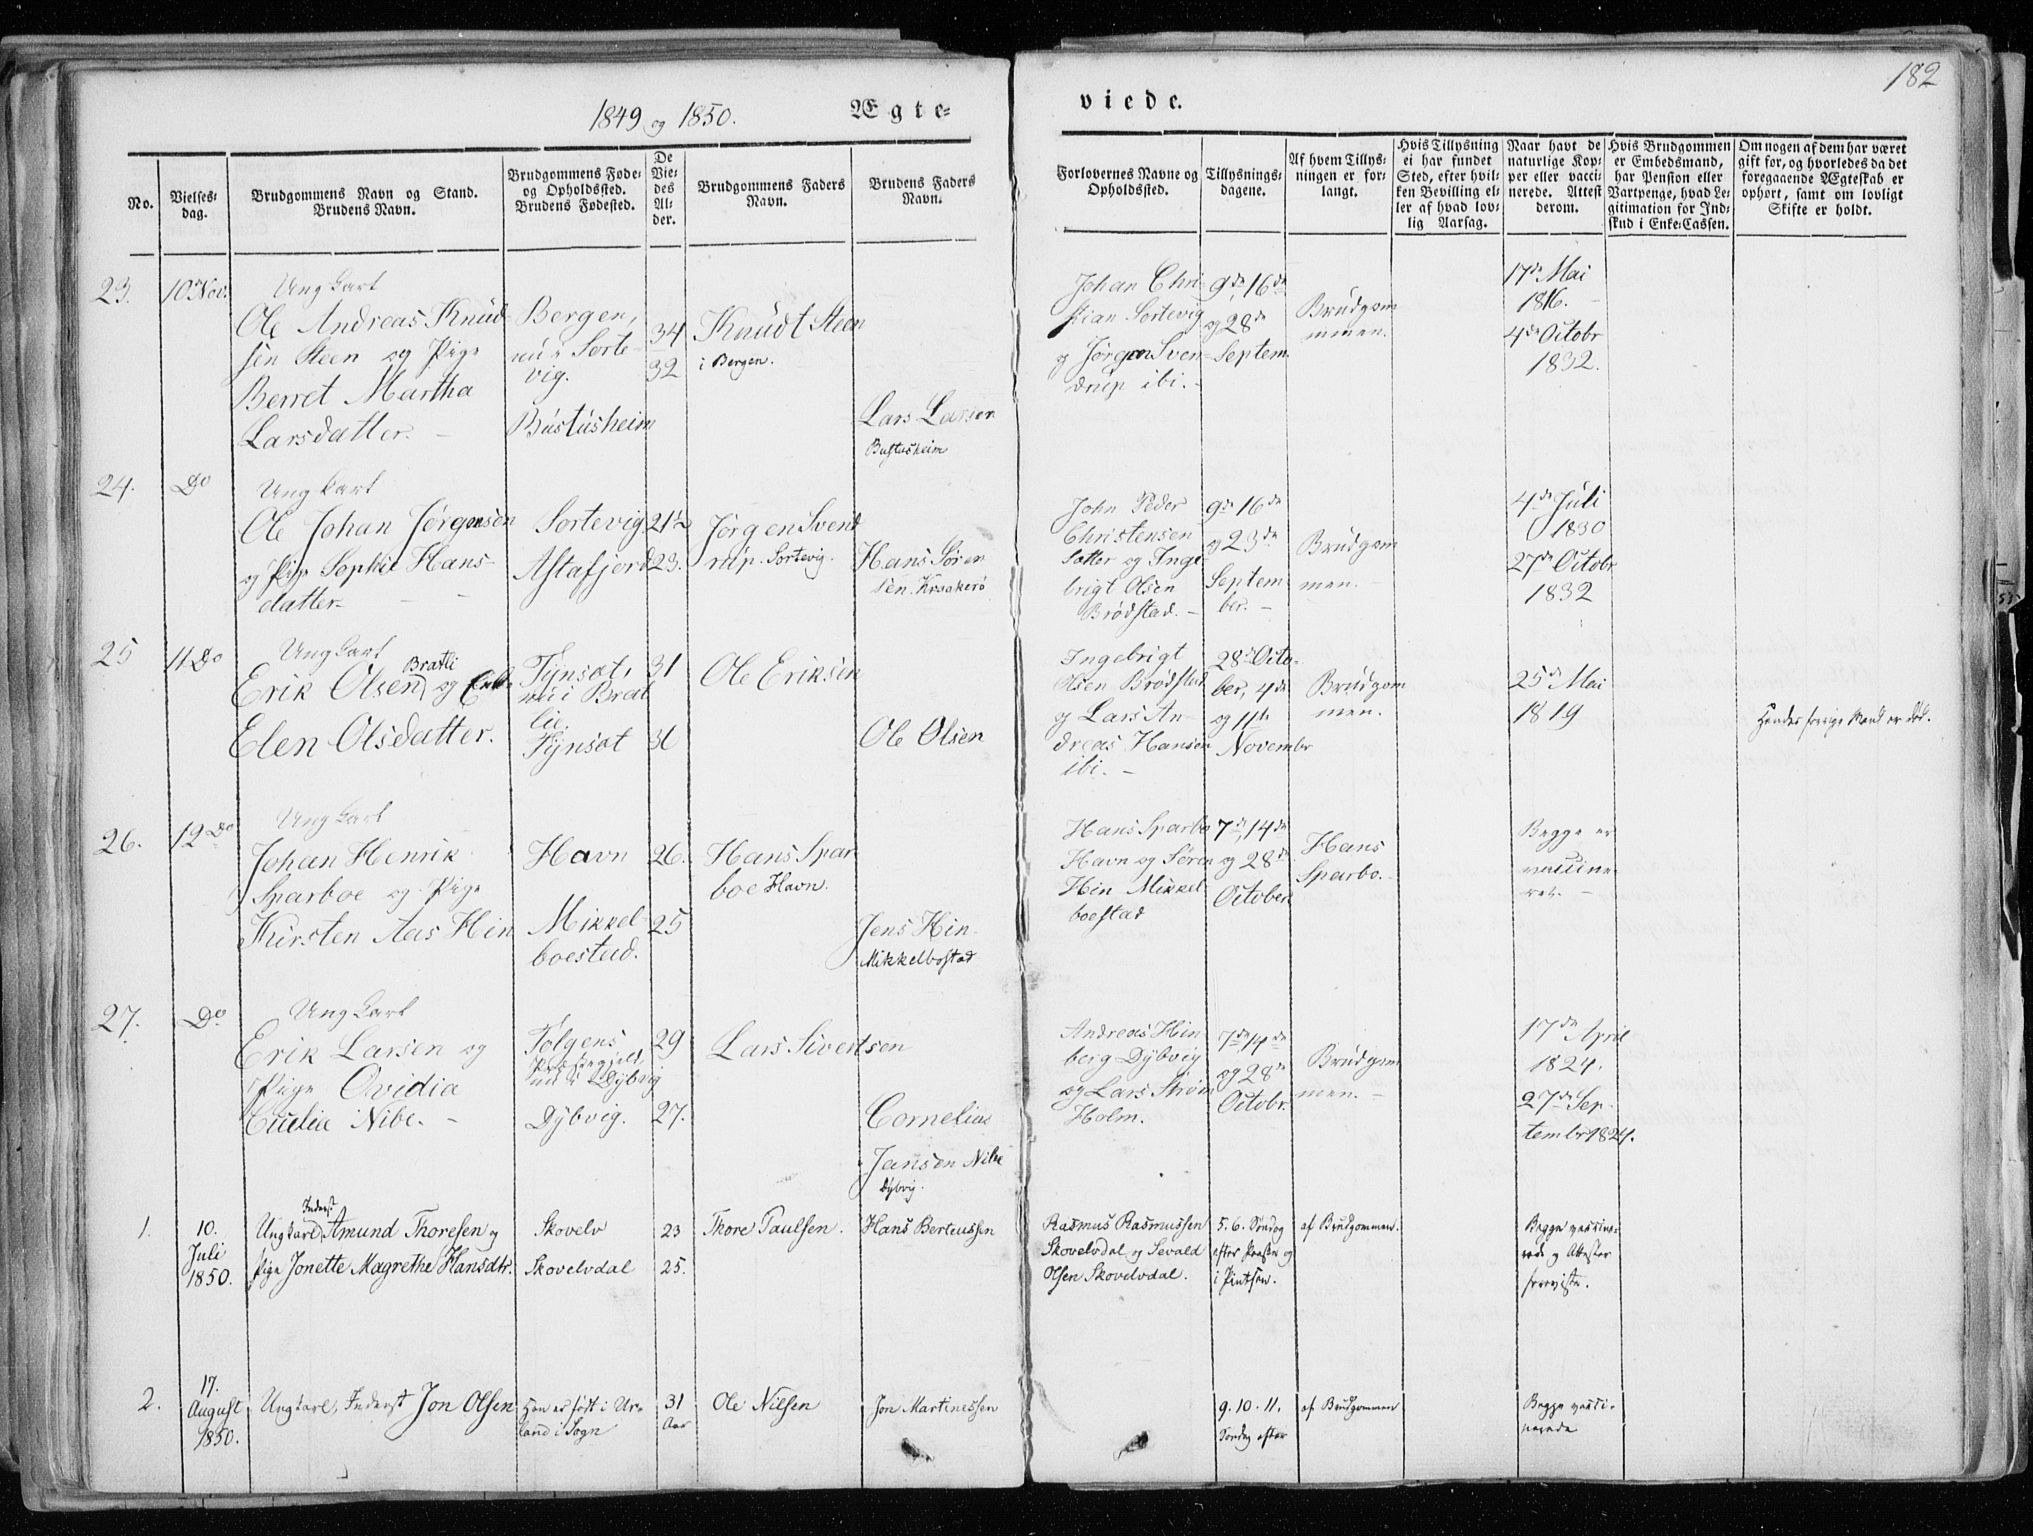 182
1849 og 1850.
Ægte-
viede.
No.
Vielses-
dag.
Brudgommens Navn og Stand.
Brudens Navn.
Brudgommens Føde-
og Opholdssted.
Brudens Fødested.
De
Vie-
des
Al-
der.
Brudgommens Faders
Navn.
Brudens Faders
Navn.
Forlovernes Navne og
Opholdssted.
Tillysnings-
dagene.
Af hvem Tillys-
ningen er for-
langt.
Hvis Tillysning
ei har fundet
Sted, efter hvil-
ken Bevilling el-
ler af hvad lov-
lig Aarsag.
Naar havt de
naturlige Kop-
per eller vacci-
nerede. Attest
derom.
Hvis Brudgommen
er Embedsmand,
har Pension eller
Vartpenge, hvad Le-
gitimation for Ind-
skud i Enke-Cassen.
Om nogen af dem har været
gift før, og hvorledes da det
foregaaende Ægteskab er
ophørt, samt om lovligt
Skifte er holdt.
23.
10 Nov.
Ungkarl
Ole Andreas Knud-
sen Steen og Pige
Berret Martha
Larsdatter.
Bergen,
nu i Sorte-
vig.
Bustusheim
34
32
Knudt Steen
i Bergen.
Lars Larsen
Bustusheim
Johan Chri-
stian Sortevig
og Jørgen Sven-
drup ibi.
9de, 16de
og 28de
Septem.
Brudgom
mmen.
17de Mai
1816.
4de Octobr
1832.
24.
Do
Ungkarl
Ole Johan Jørgensen
og Pige Sophie Hans-
datter
Sortevig
Astafjord
21½
23.
Jørgen Svend
rup. Sortevig.
Hans Søren
sen. Kraakerø
John Peder
Christensen
Satter og Inge-
brigt Olsen
Brødstad.
9de 16de
og 23de
Septem-
ber.
Brudgom
men.
4de Juli
1830
27de Octobr
1832
25
11 Do
Ungkarl
Erik Olsen Bratli og Enke
Elen Olsdatter.
Tynset,
nu i Brat
lie.
Tynset
31
31
Ole Eriksen
Ole Olsen
Ingebrigt
Olsen Brødstad
og Lars An-
dreas Hansen
ibi.
28de Octo-
ber, 4de
og 11te
November
Brudgom
men.
25de Mai
1819
Hendes forrige Mand er død.
26.
12 Do
Ungkarl
Johan Henrik
Sparboe og Pige
Kirsten Aas Hin
Havn
Mikkel-
boestad.
26.
25
Hans Spar
boe Havn.
Jens Hin
Mikkelbostad
Hans Sparbo
Havn og Søren
Hin Mikkel-
boestad
7de, 14de
og 28de
October
Hans
Sparbo.
Begge er
vaccine-
ret.
27.
Do
Ungkarl
Erik Larsen og
Pige Ovidia
Cecilia Nibe.
Tølgens
Præstegjeld,
nu i Dybvig
Dybvig.
29
27.
Lars Sivertsen
Cornelias
Jansen Nibe
Dybvig.
Andreas Hin
berg Dybvig
og Lars Strøm
Holm.
7de, 14de
og 28de
Octobr.
Brudgom
men.
17de April
1824.
27de Sep-
tembr 1824.
1.
10.
Juli
1850.
Ungkarl, Inderst Amund Thoresen og
Pige Jonette Magrethe Hansdtr.
Skovelv
Skovelvdal
23
25.
Thore Paulsen.
Hans Berteussen
Rasmus Rasmussen
Skovelvdal og Sevald
Olsen Skovelvdal.
5. 6. Søndag
efter Paaske og
i Pintsen.
af Brudgommen.
Begge vaccine-
rede og Attester
foreviste.
2.
17.
August
1850.
Ungkarl, Inderst Jon Olsen
Han er født i Ur-
land i Sogn
31
Aar
Ole Nilsen
Jon Martinessen
9. 10. 11.
Søndag efter
af Brudgommen
Begge vacci-
nerede